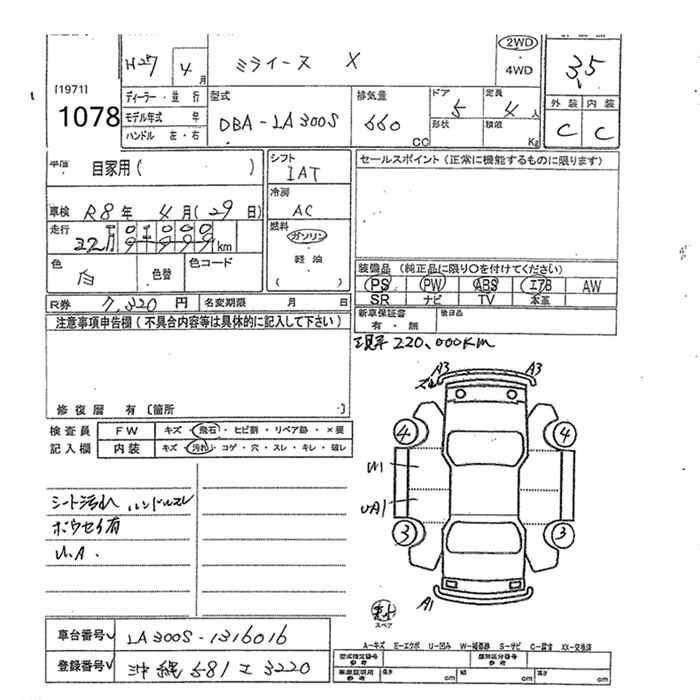 H27 4月 ミライース X 2WD 4WD 3.5
[1971]
1078
ディーラー・並行 型式 排気量 ドア 定員 外装 内装
モデル年式 年 DBA-LA300S 660 CC 5 4人 C C
ハンドル 左・右 形状 積載 Kg
自家用( ) シフト IAT セールスポイント(正常に機能するものに限ります)
車検 R8年 4月(29日) 冷房 AC
走行 km 燃料 ガソリン
軽油
( )
色 白 色替 色コード
装備品(純正品に限り〇を付けてください)
PS PW ABS エアB AW
SR ナビ TV 本革
R券 7,320円 名変期限 月 日 新車保証書 有・無 後日品
注意事項申告欄(不具合内容等は具体的に記入して下さい)
現平 220,000KM
修復歴 有〔箇所 〕
検査員 FW キズ・飛石・ヒビ割・リペア跡・×要
記入欄 内装 キズ・汚れ・コゲ・穴・スレ・キレ・破レ
A3 A3
4 4
U1
UA1
3 3
A1
シート汚れ ハンドルスレ
ボウセイ有
U.A.
スペア
車台番号 LA300S-1316016
登録番号 沖縄 581 エ 3220
A-キズ E-エクボ U-凹み W-補修跡 S-サビ C-腐食 XX-交換済
型式指定番号 参考 類別区分番号 参考
車庫証明用 参考 長さ cm 幅 cm 高さ cm